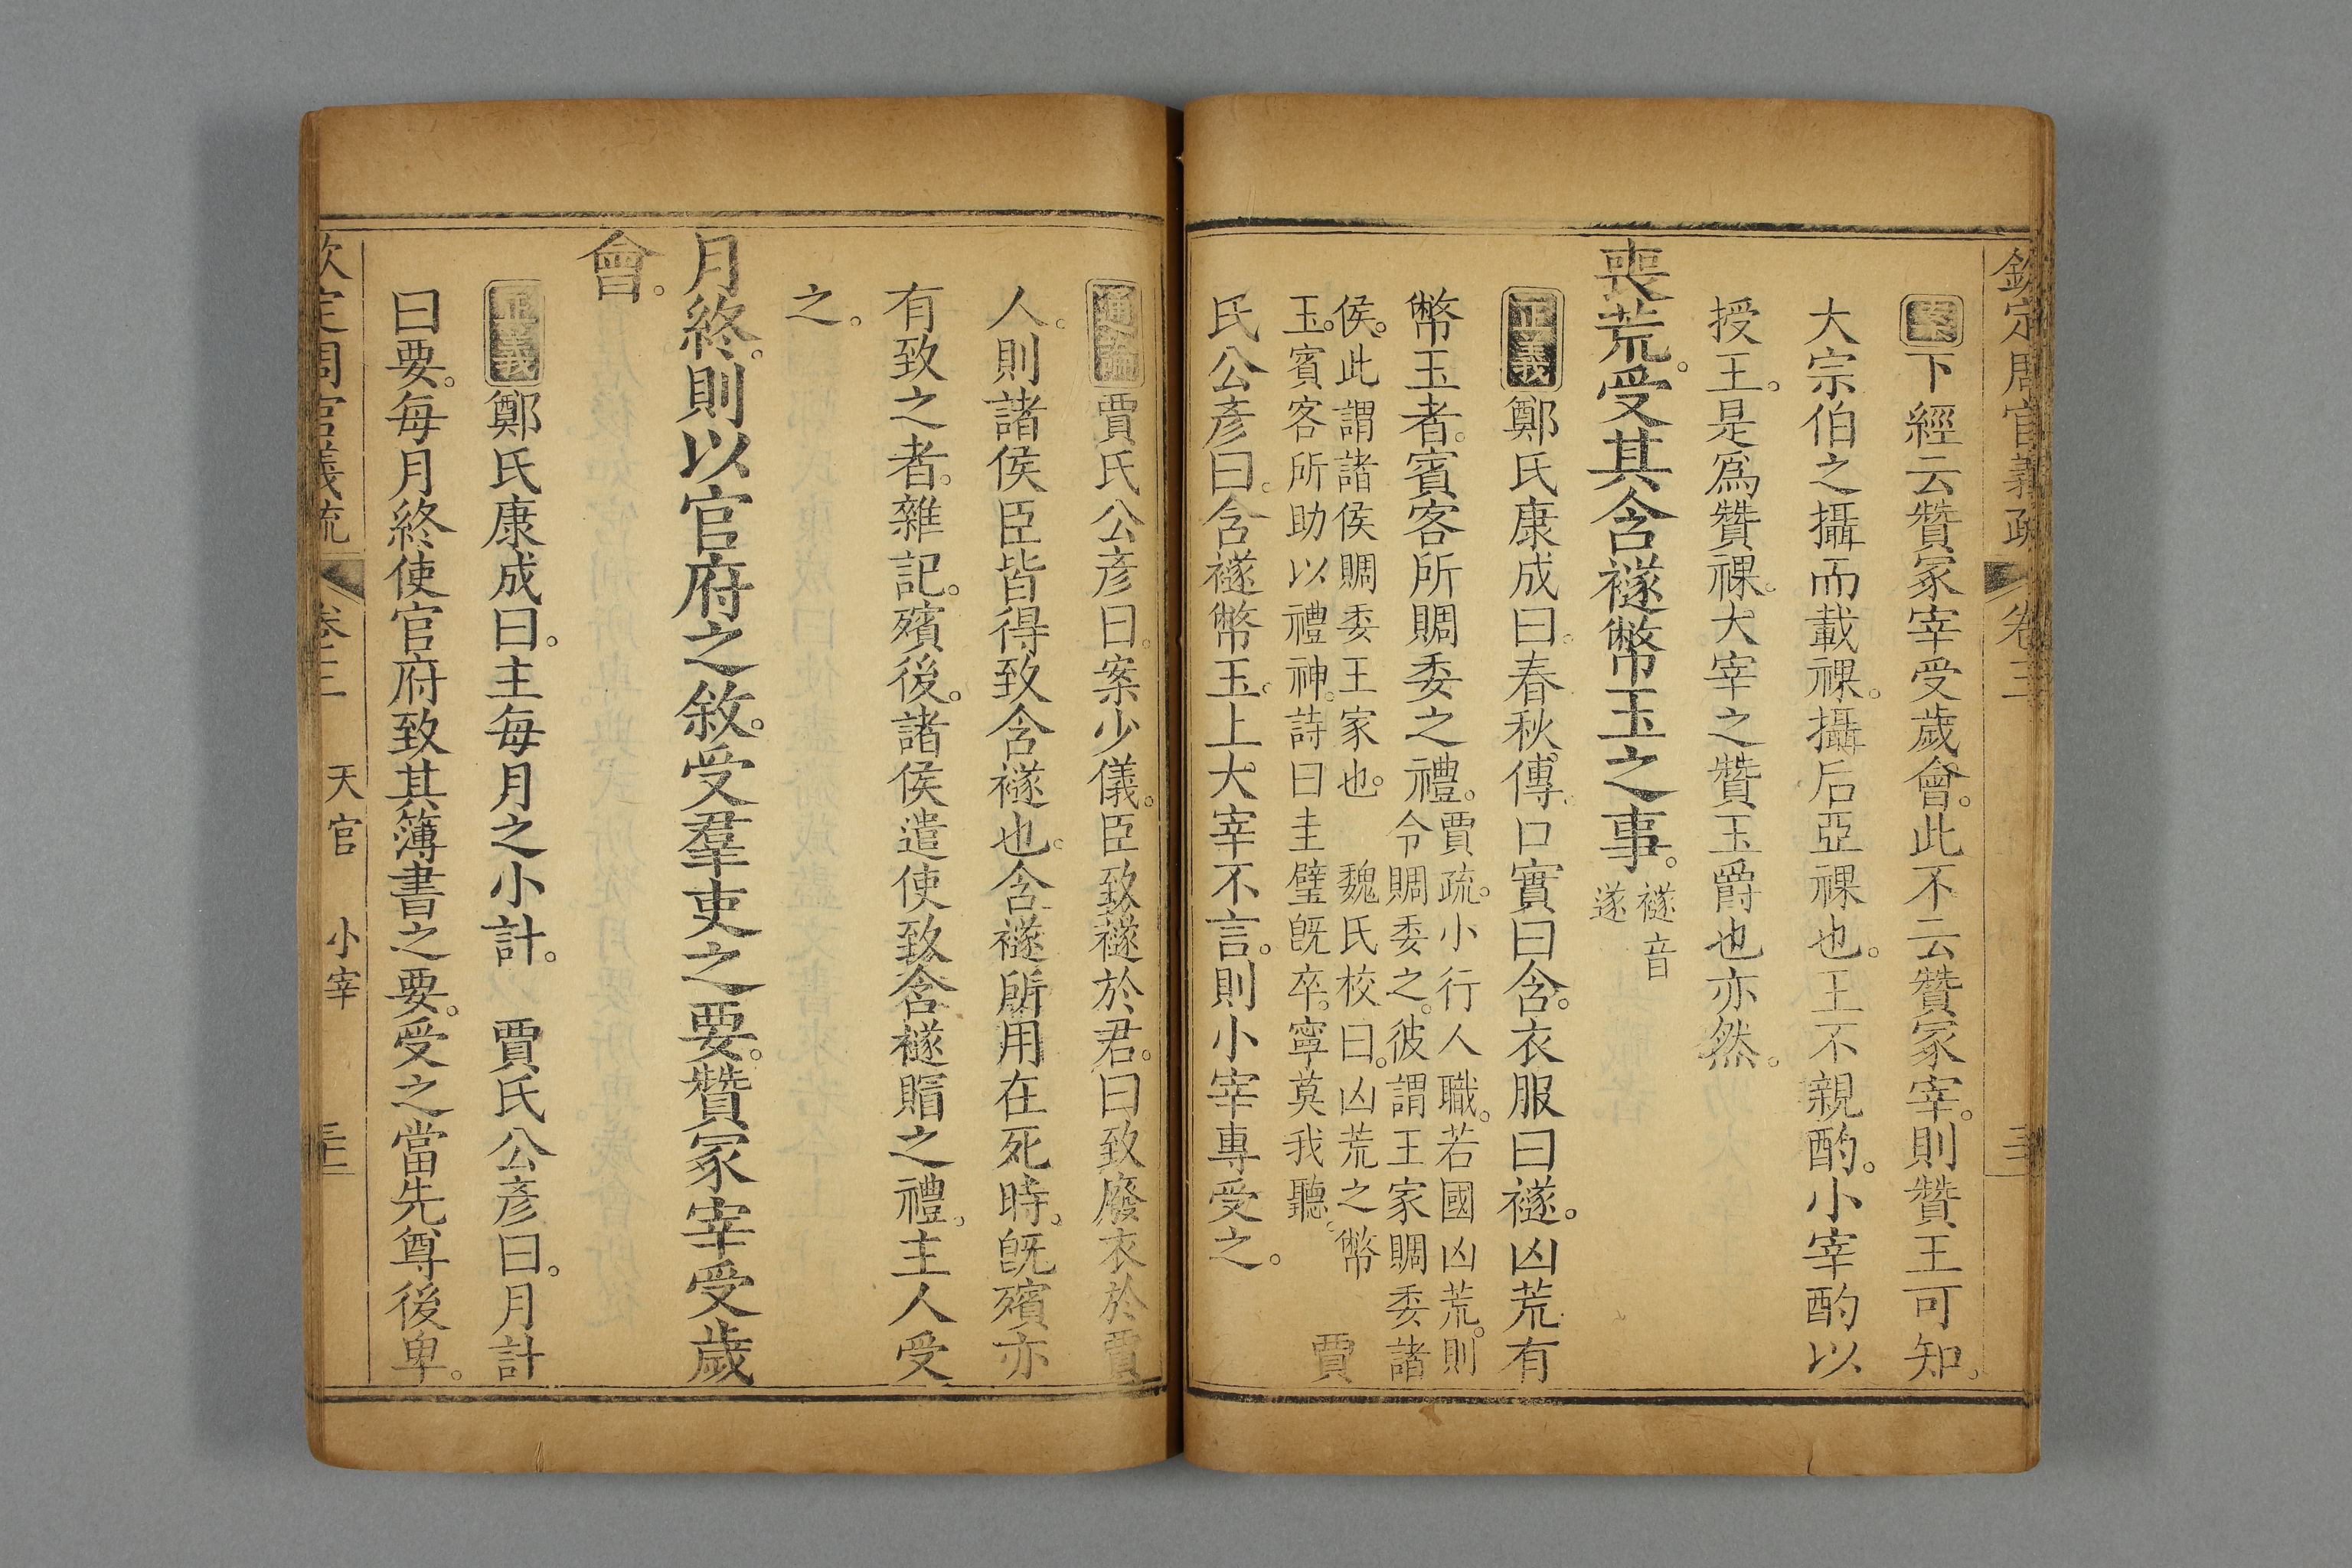 欽定周官義疏 卷三
案下經云贊冢宰受歲會。此不云贊冢宰。則贊王可知。
大宗伯之攝而載祼。攝后亞祼也。王不親酌。小宰酌以
授王。是爲贊祼。大宰之贊玉爵也亦然。
喪荒。受其含襚幣玉之事。襚音
遂
正義鄭氏康成曰。春秋傳。口實曰含。衣服曰襚。凶荒有
幣玉者。賓客所賙委之禮。賈疏。小行人職。若國凶荒。則
令賙委之。彼謂王家賙委諸
侯。此謂諸侯賙委王家也。 魏氏校曰。凶荒之幣
玉。賓客所助以禮神。詩曰圭璧旣卒。寧莫我聽。 賈
氏公彥曰。含襚幣玉。上大宰不言。則小宰專受之。
通論賈氏公彥曰。案少儀。臣致襚於君。曰致廢衣於賈
人。則諸侯臣皆得致含襚也。含襚所用在死時。旣殯亦
有致之者。雜記。殯後。諸侯遣使致含襚賵之禮。主人受
之。
月終。則以官府之敘。受羣吏之要。贊冢宰受歲
會。
正義鄭氏康成曰。主每月之小計。 賈氏公彥曰。月計
曰要。每月終使官府致其簿書之要。受之當先尊後卑。
欽定周官義疏 卷三 天官 小宰